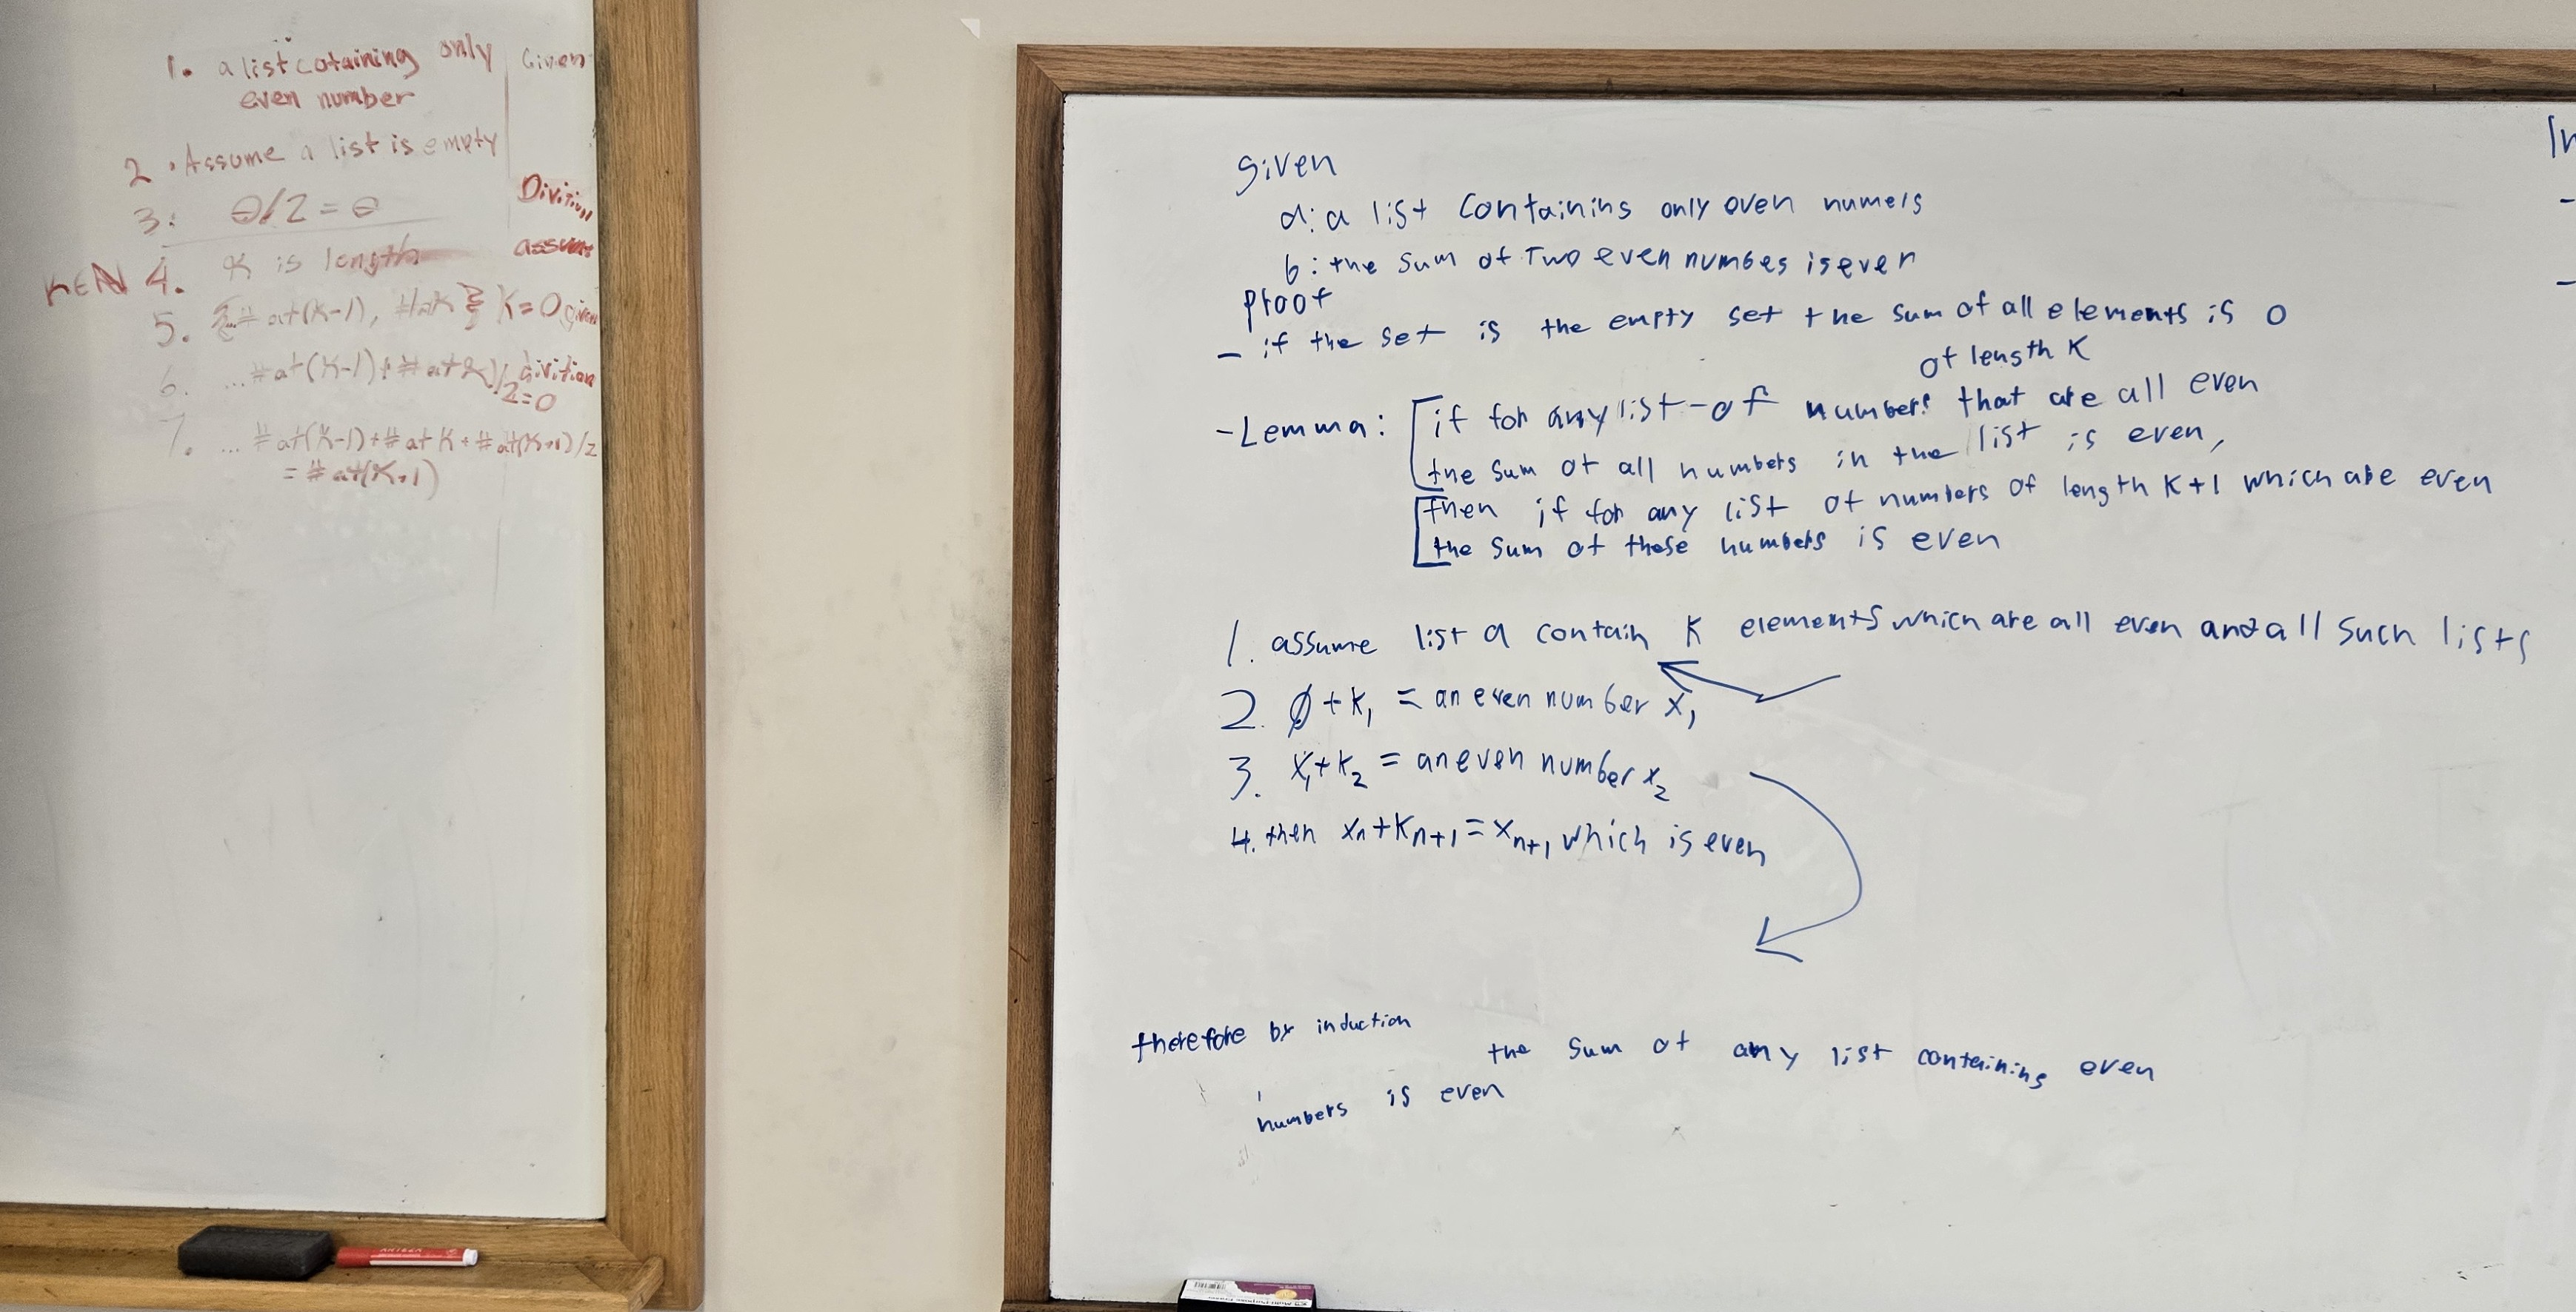 1. a list cotaining only | Given
even number
2. Assume a list is empty
3. 0/2 = 0 Division
K∈N 4. K is length assume
5. {# at(K-1), #atK} K=0 given
6. ... # at(K-1) + # at K)/2=0 division
7. ... # at(K-1) + # at K + # at(K+1)/2
= # at(K+1)
given
a: a list containing only even numers
b: the sum of Two even numbes is even
proof
- if the set is the empty set the sum of all elements is 0
of length K
- Lemma: [if for any list-of numbers that are all even
the sum of all numbers in the list is even,
[then if for any list of numbers of length K+1 which are even
the sum of these numbers is even
1. assume list a contain K elements which are all even and all such lists
2. ∅ + K₁ = an even number x₁
3. x₁ + K₂ = an even number x₂
4. then xₙ + Kₙ₊₁ = xₙ₊₁ which is even
therefore by induction
the sum of any list containing even
numbers is even
In
-
-